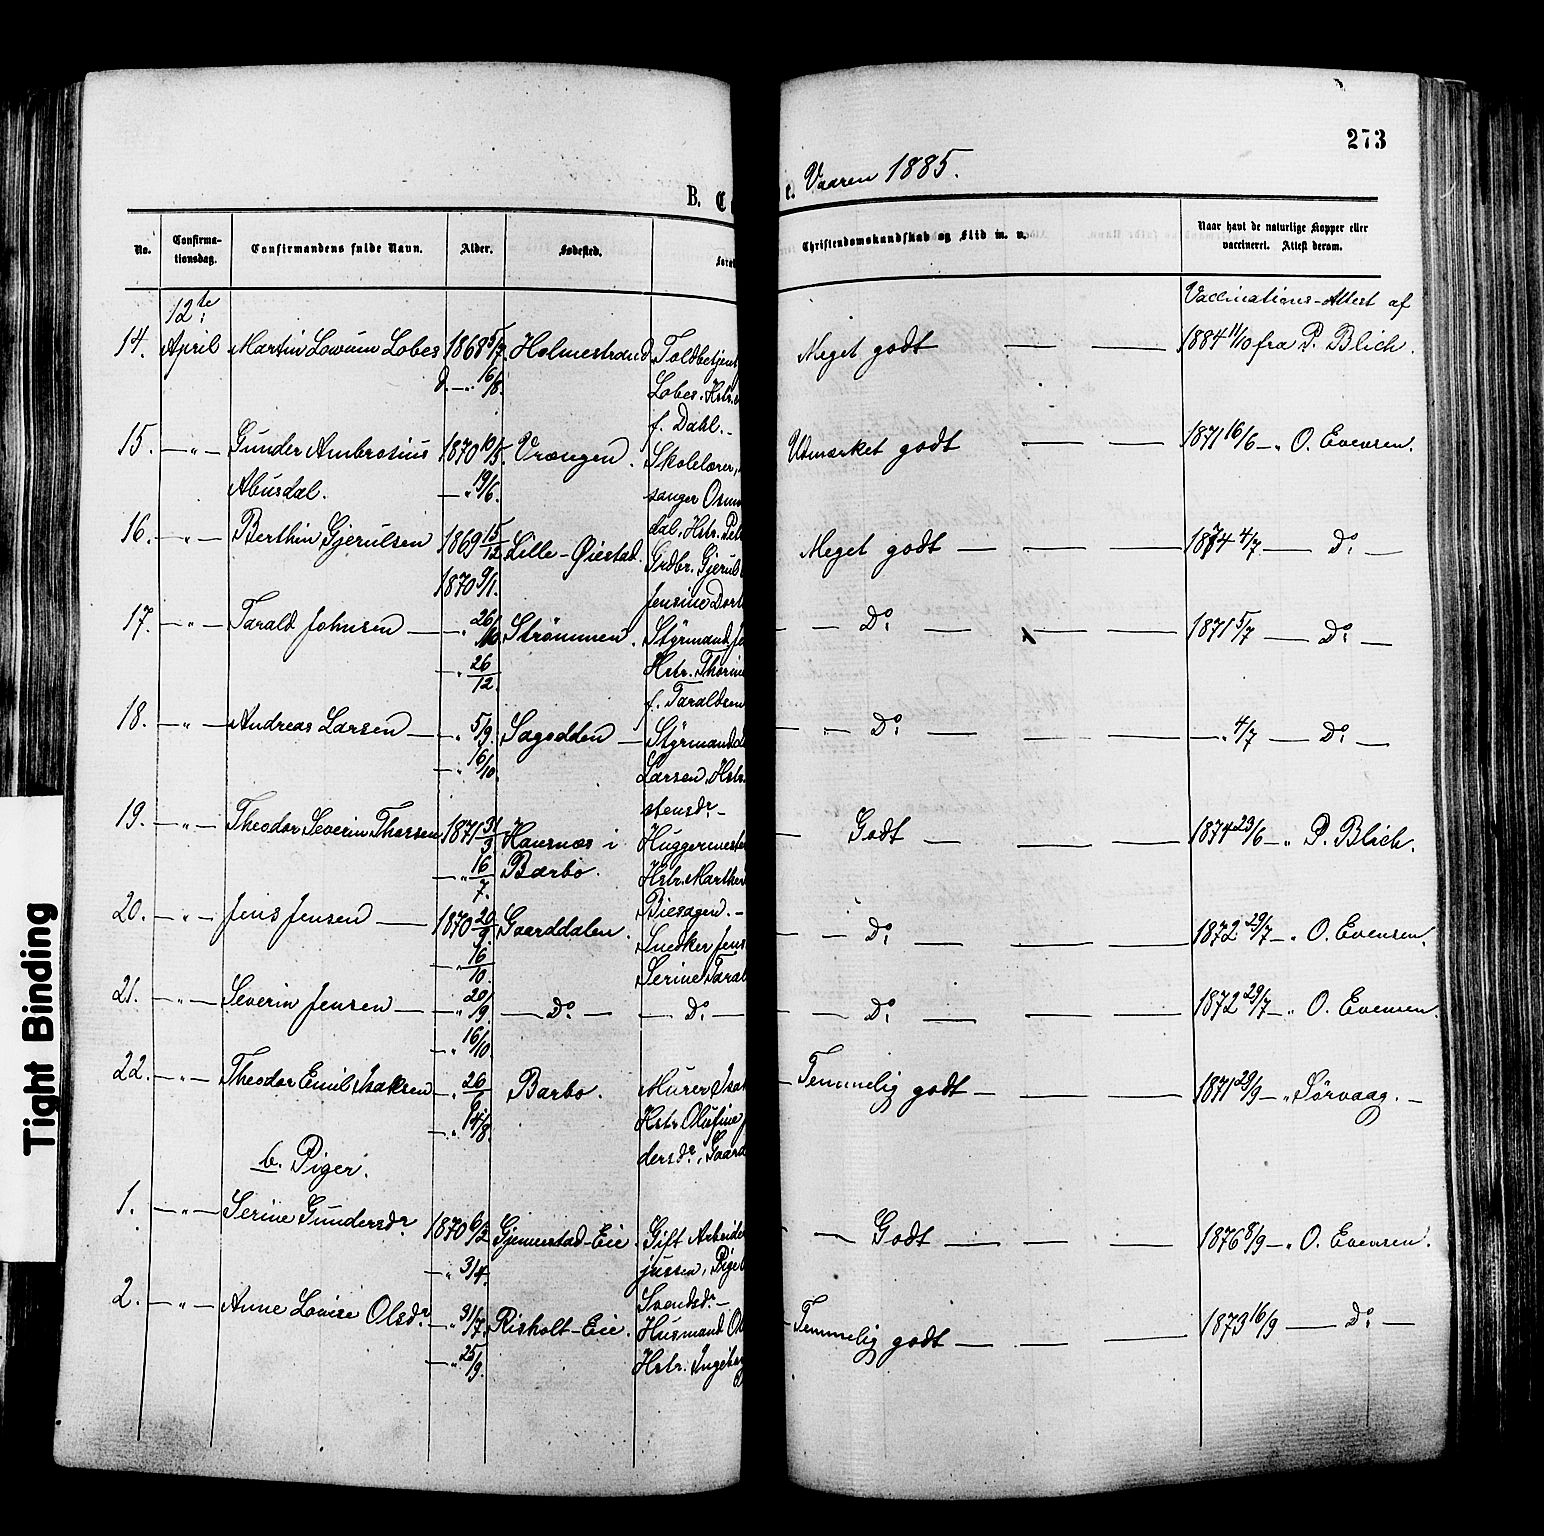 273
B. C t. Vaaren 1885.
No. Confirma-tionsdag. Confirmandens fulde Navn. Alder. Fødested. Foræl Christendomskundskab og Flid m. v. Naar havt de naturlige Kopper eller vaccineret. Attest derom.
12te Vaccinations-Attest af
14. April Martin Lobes 1868 5/7 Holmestrand Toldbetjent Meget godt — — 1884 11/10 fra P. Blich.
d. — „ 16/8. Lobes. Hstr.
f. Dahl. —
15. — „ — Gunder Ambrosius 1870 19/5. Vrængen. Skolelærer, Udmærket godt — — 1871 16/6 — „ O. Evensen.
Abusdal. — „ 19/6. sanger Osmu
dal. Hstr. Pet
16. — „ — Berthin Gjerulsen 1869 15/12 Lille-Øiestad. Grdbr. Gjerul Meget godt — — — 1874 4/7 — Do. —
1870 9/1. Jensine Dort
17. — „ — Tarald Johnsen — — „ 26/10 Strømmen. Styrmand Jo — Do. — — — 1871 5/7 — Do. —
— „ 26/12. Hstr. Thorine
f. Taraldsen
18. — „ — Andreas Larsen — — „ 5/9. Sagodden — Styrmand — Do. — — — — „ 4/7 — Do. —
— „ 16/10. Larsen, Hstr.
stensdr. —
19. — „ — Theodor Severin Thorsen 1871 31/3 Havsnæs i Huggermester — Godt — — — 1874 23/6 — „ P. Blich.
— „ 16/7. Barbo. Hstr. Marthe
Biesagen. —
20. — „ — Jens Jensen — 1870 20/9 Gaarddalen. Snedker Jens — Do. — — 1872 29/7 — „ O. Evensen.
— „ 16/10. Serine Taral
21. — „ — Severin Jensen — — „ 20/9 — Do. — — Do. — — Do. — — — 1872 29/7 — „ O. Evensen.
— „ 16/10.
22. — „ — Theodor Emil Isaksen — „ 26/6 Barbo. Murer Isak — Temmelig godt — — — 1871 29/9 — „ Sørvaag. —
— „ 14/8. Hstr. Olufine
dersdr., Gaard
b. Piger.
1. — „ — Serine Gundersdr. 1870 6/2 Gjennestad-Eie. Gift Arbeide — Godt — — — 1876 8/9 — „ O. Evensen.
— „ 3/4. jussen, Pige
Svendsdr. —
2. — „ — Anne Lovise Olsdr. — „ 31/7. Risholt-Eie. Husmand Ol — Temmelig godt — — — 1873 16/9 — Do. —
— „ 25/9. Hstr. Ingeborg
Tight Binding